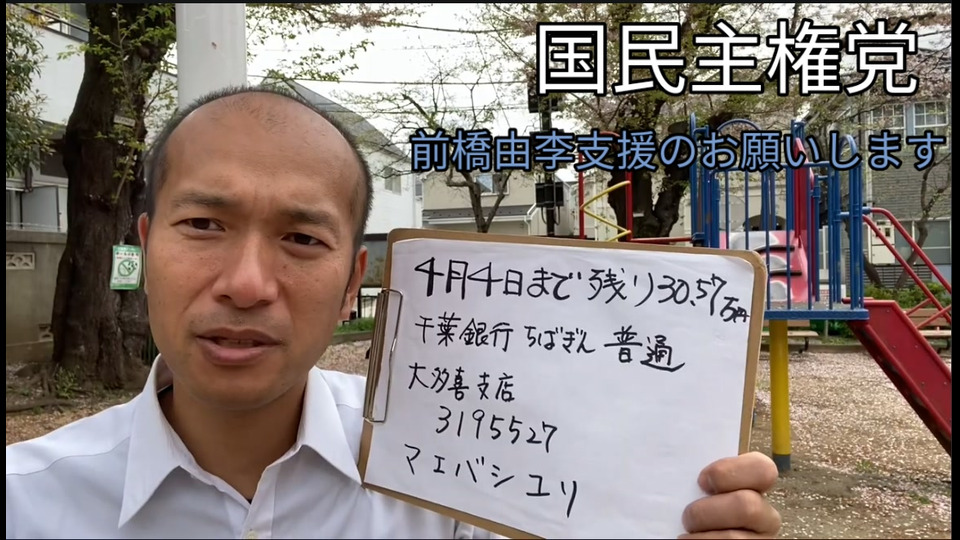 国民主権党
前橋由李支援のお願いします
4月4日まで残り30.57万円
千葉銀行 ちばぎん 普通
大多喜支店
3195527
マエバシユリ